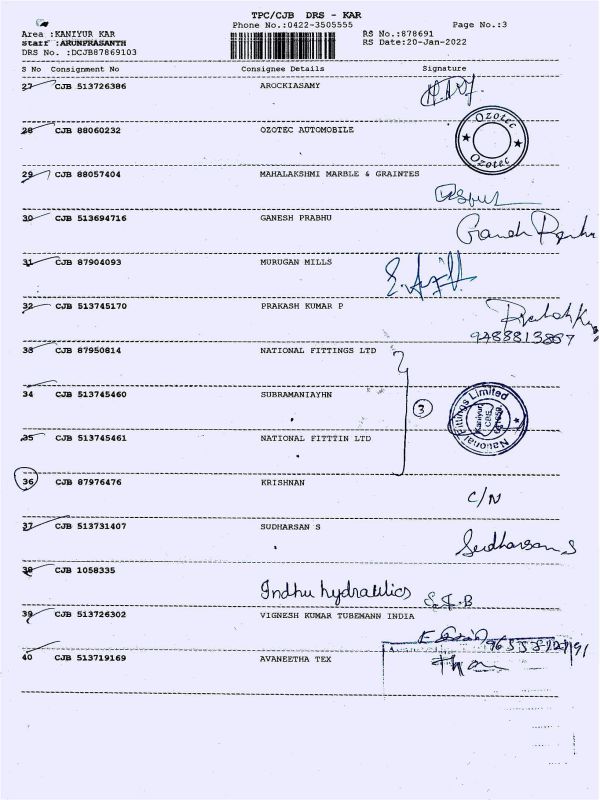 TPC/CJB DRS - KAR
Phone No.:0422-3505555
Page No.:3
Area :KANIYUR KAR
RS No.:878691
Staff :ARUNPRASANTH
RS Date:20-Jan-2022
DRS No. :DCJB87869103
S No Consignment No Consignee Details Signature
27 CJB 513726386 AROCKIASAMY
28 CJB 88060232 OZOTEC AUTOMOBILE
Ozotec
Ozotec
29 CJB 88057404 MAHALAKSHMI MARBLE & GRAINTES
30 CJB 513694716 GANESH PRABHU
31 CJB 87904093 MURUGAN MILLS
32 CJB 513745170 PRAKASH KUMAR P
33 CJB 87950814 NATIONAL FITTINGS LTD
34 CJB 513745460 SUBRAMANIAYHN
3
National Fittings Limited
35 CJB 513745461 NATIONAL FITTTIN LTD
36 CJB 87976476 KRISHNAN
C/N
37 CJB 513731407 SUDHARSAN S
Sudharsan S
38 CJB 1058335
Indhu hydraulics
39 CJB 513726302 VIGNESH KUMAR TUBEMANN INDIA
40 CJB 513719169 AVANEETHA TEX